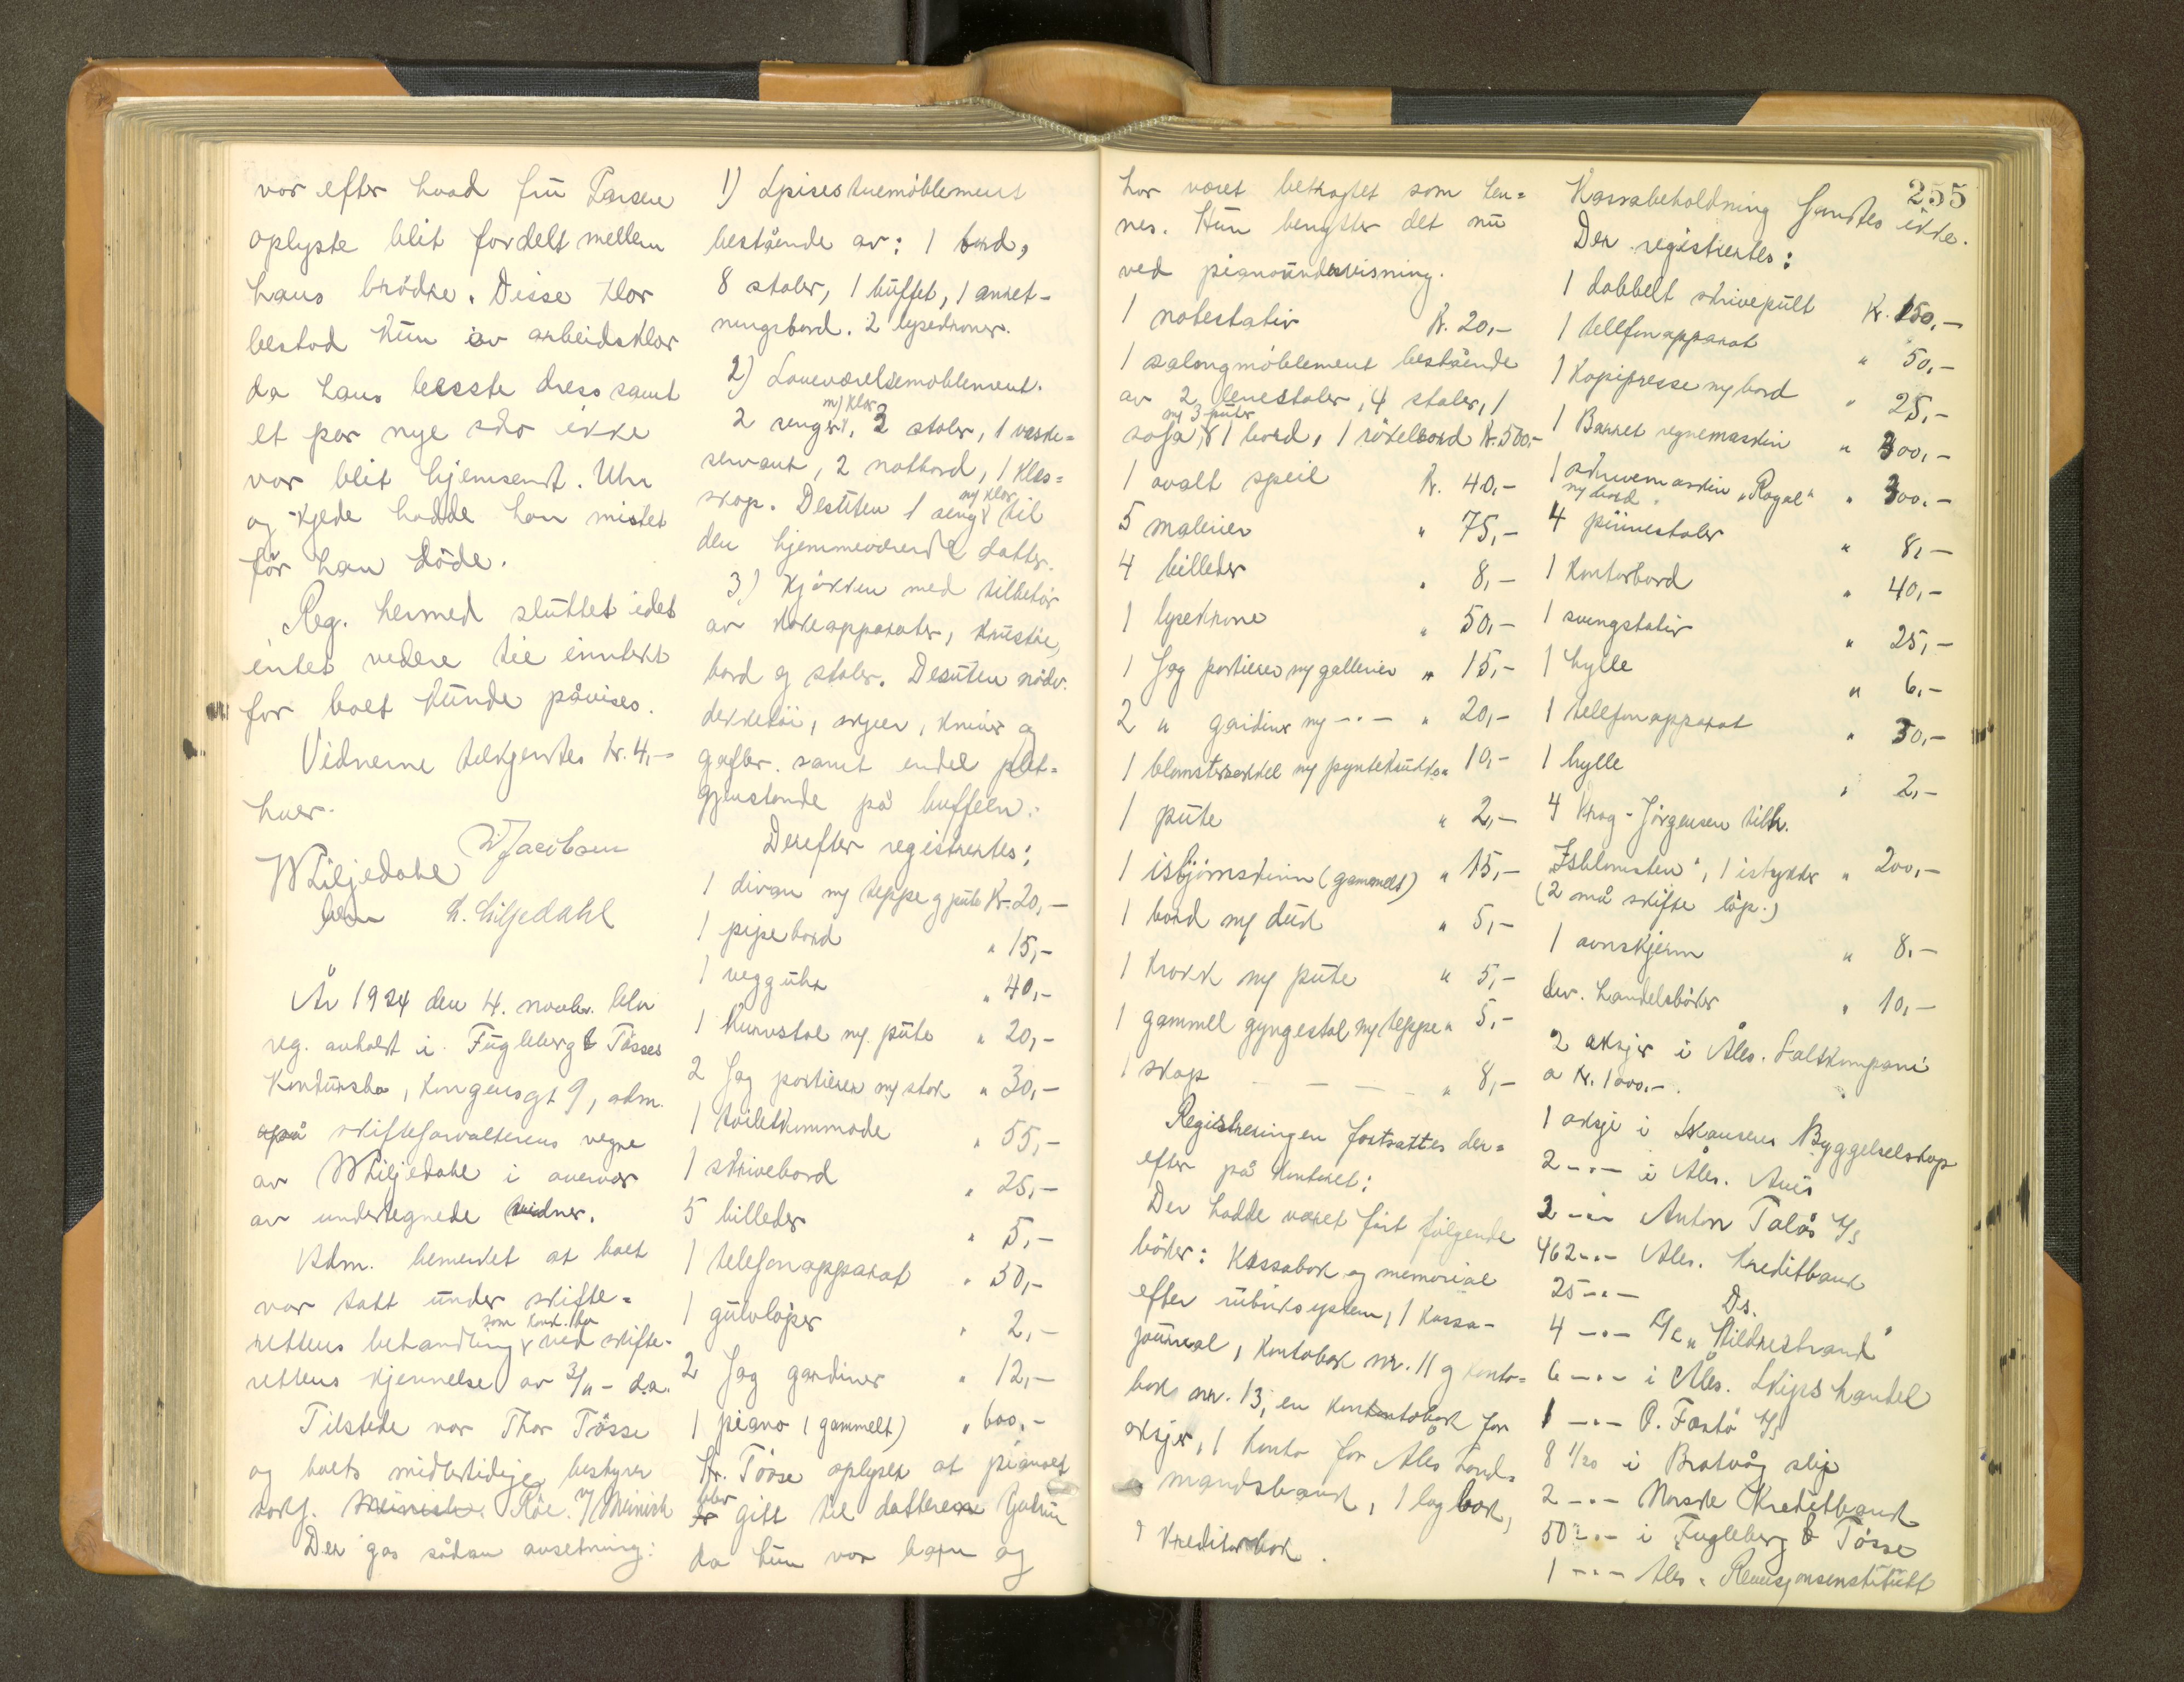 var efter hvad fru Larsen
oplyste blit fordelt mellem
hans brödre. Disse klær
bestod kun av arbeidsklær
da hans beste dress samt
et par nye sko ikke
var blit hjemsendt. Uhr
og kjede hadde han mistet
før han döde.
Reg. hermed sluttet idet
intet videre til inntekt
for boet kunde påvises.
Vidnerne tilkjendtes kr. 4,-
hver.
Jacobsen
W Liljedahl
L. Liljedahl
År 1924 den 4. novbr. blev
reg. avholdt i Fugleberg & Tösses
konkursbo, Kongensgt 9, adm.
på skifteforvalterens vegne
av W Liljedahl i overvær
av undertegnede vidner.
Adm. bemerket at boet
var tatt under skifte=
som konk. bo
rettens behandling ved skifte-
rettens kjennelse av 3/11 - d.a.
Tilstede var Thor Tösse
og boets midlertidige bestyrer
Röe. v/ Meinich
Der gas sådan avsetning:
1) Spisestuemöblement
bestående av: 1 bord,
8 stoler, 1 buffet, 1 anret-
ningsbord. 2 lysekroner.
2) Soveværelsemöblement.
m/ klær
2 senger, 2 stoler, 1 vaske=
servant, 2 natbord, 1 klæs=
m/ klær
skap. Desuten 1 seng til
den hjemmeværende datter.
3) Kjökken med tilbehör
av kokeapparater, krustöi,
bord og stoler. Desuten nödv.
dekketöi, skjeer, kniver og
gafler. samt endel plet=
gjenstande på buffeen.
Derefter registrertes:
1 divan m/ teppe og pute kr. 20,-
1 pipebord " 15,-
1 vegguhr " 40,-
1 kurvstol m/ pute " 20,-
2 fag portierer m/ stok " 30,-
1 toiletkommode " 55,-
1 skrivebord " 25,-
5 billeder " 5,-
1 telefonapparat " 30,-
1 gulvløper " 2,-
2 fag gardiner " 12,-
1 piano (gammelt) " 600,-
Hr. Tösse oplyser at pianoet
blev
gitt til datteren Gudrun
da hun var barn og
har været betraktet som hen=
nes. Hun benytter det nu
ved pianoundervisning.
1 notestativ kr. 20,-
1 salongmöblement bestående
av 2 lenestoler, 4 stoler, 1
m/ 3 puter
sofa, 1 bord, 1 rökebord kr. 500,-
1 ovalt speil kr. 40,-
5 malerier " 75,-
4 billeder " 8,-
1 lysekrone " 50,-
1 fag portierer m/ gallerier " 15,-
2 " gardiner m/ -"- " 20,-
1 blomstersokkel m/ pyntekrukke " 10,-
1 pute " 2,-
1 isbjörnskinn (gammelt) " 15,-
1 bord m/ duk " 5,-
1 krakk m/ pute " 5,-
1 gammel gyngestol m/ teppe " 5,-
1 skap - - - " 8,-
Registreringen fortsattes der=
efter på kontoret:
Der hadde været fört fölgende
böker: Kassabok og memorial
efter rubriksystem, 1 kassa-
journal, kontobok nr. 11 og konto=
bok nr. 13, en kontobok for
aksjer, 1 konto for Ales Land=
mandsbank, 1 lagbok,
1 kreditorbok.
255
Kassabeholdning fandtes ikke.
Der registrertes:
1 dobbelt skrivepult kr. 150,-
1 tellfonapparat " 50,-
1 kopipresse m/ bord " 25,-
1 Barret regnemaskin " 300,-
1 skrivemaskin "Royal" " 300,-
m/ bord
4 pinnestoler " 8,-
1 kontorbord " 40,-
1 svingstativ " 25,-
1 hylle " 6,-
1 telefonapparat " 30,-
1 hylle " 2,-
4 Krag-Jörgensen tilh.
"Isblomsten", 1 istykker " 200,-
(2 må skifte löp.)
1 ovnskjerm " 8,-
div. handelsböker " 10,-
2 aksjer i Åles. Saltkompani
a kr. 1000,-.
1 aksje i Skansens Byggelselskap
2 -"- i Åles. Avis
2 -"- Anton Talås A/S
462 -"- Ales. Kreditbank
25 -"- Ds.
4 -"- A/S "Hildrestrand"
6 -"- i Åles. Skipshandel
1 -"- O. Fostö A/S
8 1/20 i Bratvåg slip
2 -"- Norske Kreditbank
50 -"- i Fugleberg & Tösse
1 -"- Ales. Revisjonsinstitutt